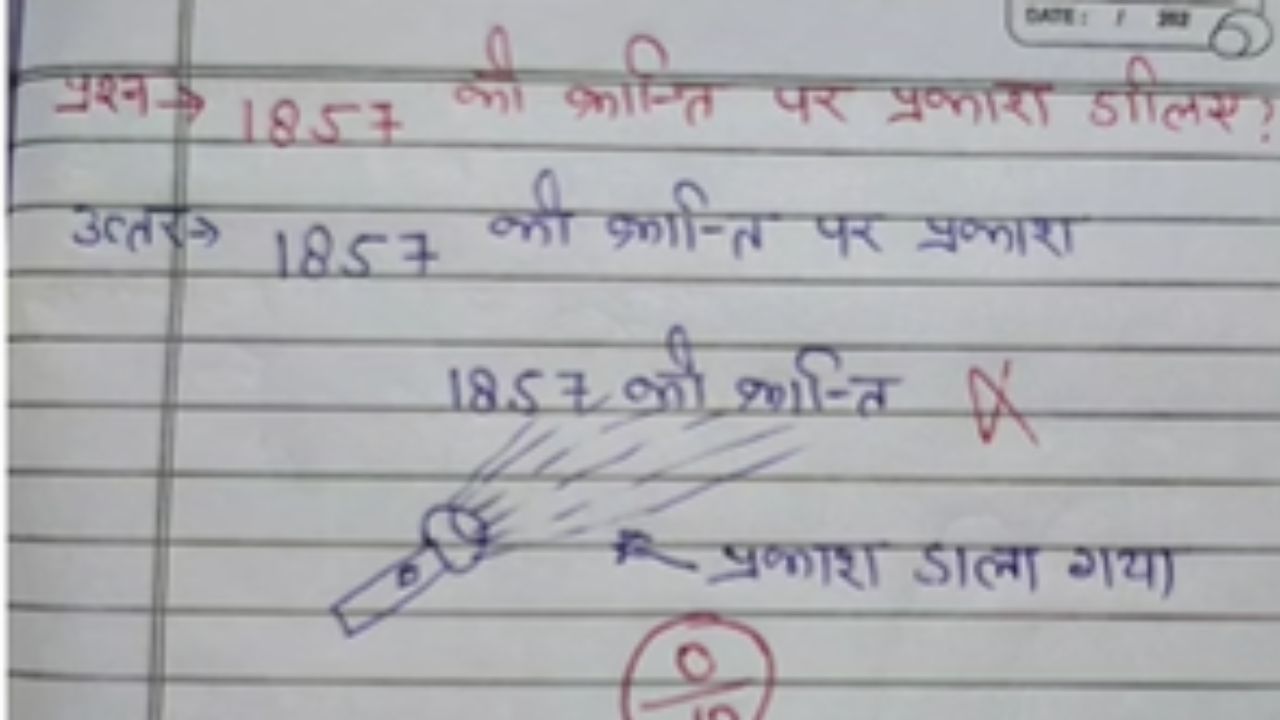 DATE: / 202
प्रश्न→ 1857 की क्रान्ति पर प्रकाश डालिए?
उत्तर→ 1857 की क्रान्ति पर प्रकाश
1857 की क्रान्ति
प्रकाश डाला गया
0
10